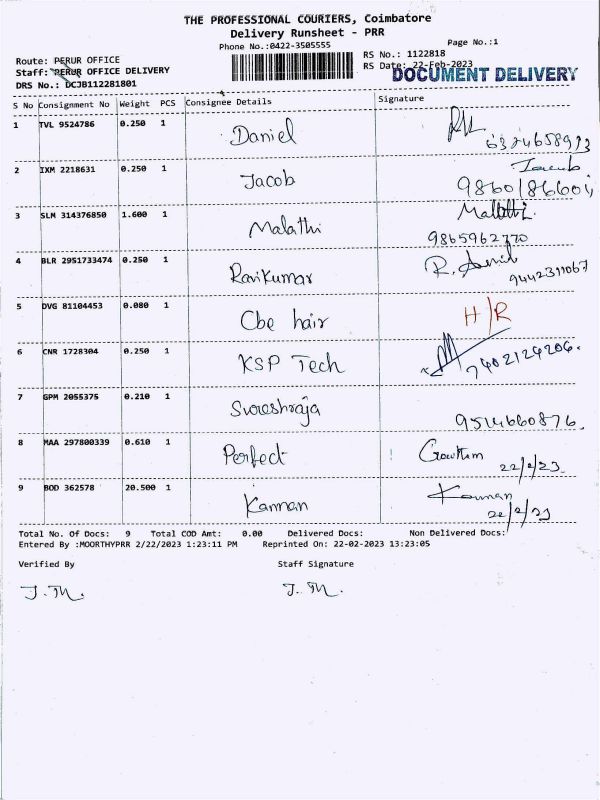 THE PROFESSIONAL COURIERS, Coimbatore
Delivery Runsheet - PRR
Phone No.:0422-3505555
Page No.:1
Route: PERUR OFFICE
RS No.: 1122818
Staff: PERUR OFFICE DELIVERY
RS Date: 22-Feb-2023
DOCUMENT DELIVERY
DRS No.: DCJB112281801
S No Consignment No Weight PCS Consignee Details Signature
1 TVL 9524786 0.250 1 Daniel
2 IXM 2218631 0.250 1 Jacob Jacob
3 SLM 314376850 1.600 1 Malathi Malathi
9865962770
4 BLR 2951733474 0.250 1 Ravikumar
9442311067
5 DVG 81104453 0.080 1 Cbe hair H/R
6 CNR 1728304 0.250 1 KSP Tech
7402124206.
7 GPM 2055375 0.210 1 Sureshraja
9514660876.
8 MAA 297800339 0.610 1 Perfect Gowthm
22/2/23.
9 BOD 362578 20.500 1 Kannan Kannan
22/2/23
Total No. Of Docs: 9 Total COD Amt: 0.00 Delivered Docs: Non Delivered Docs:
Entered By :MOORTHYPRR 2/22/2023 1:23:11 PM Reprinted On: 22-02-2023 13:23:05
Verified By Staff Signature
J. M. J. M.